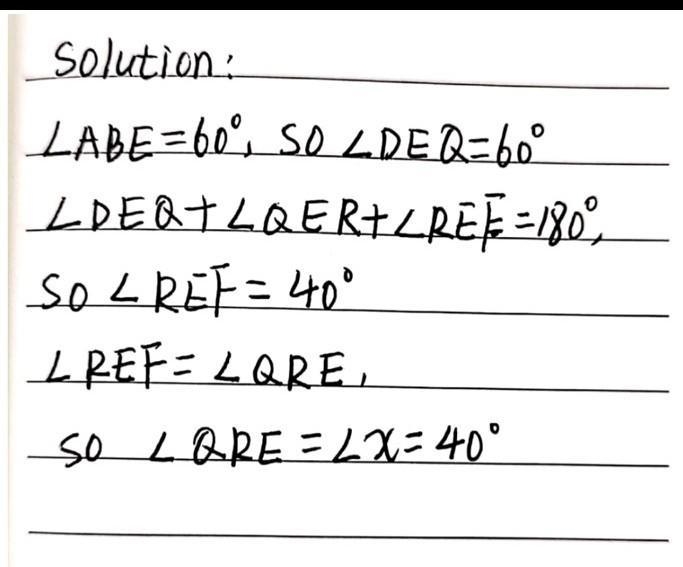 Solution:
∠ABE=60°, so ∠DEQ=60°
∠DEQ+∠QER+∠REF=180°,
so ∠REF=40°
∠REF=∠QRE,
so ∠QRE=∠x=40°